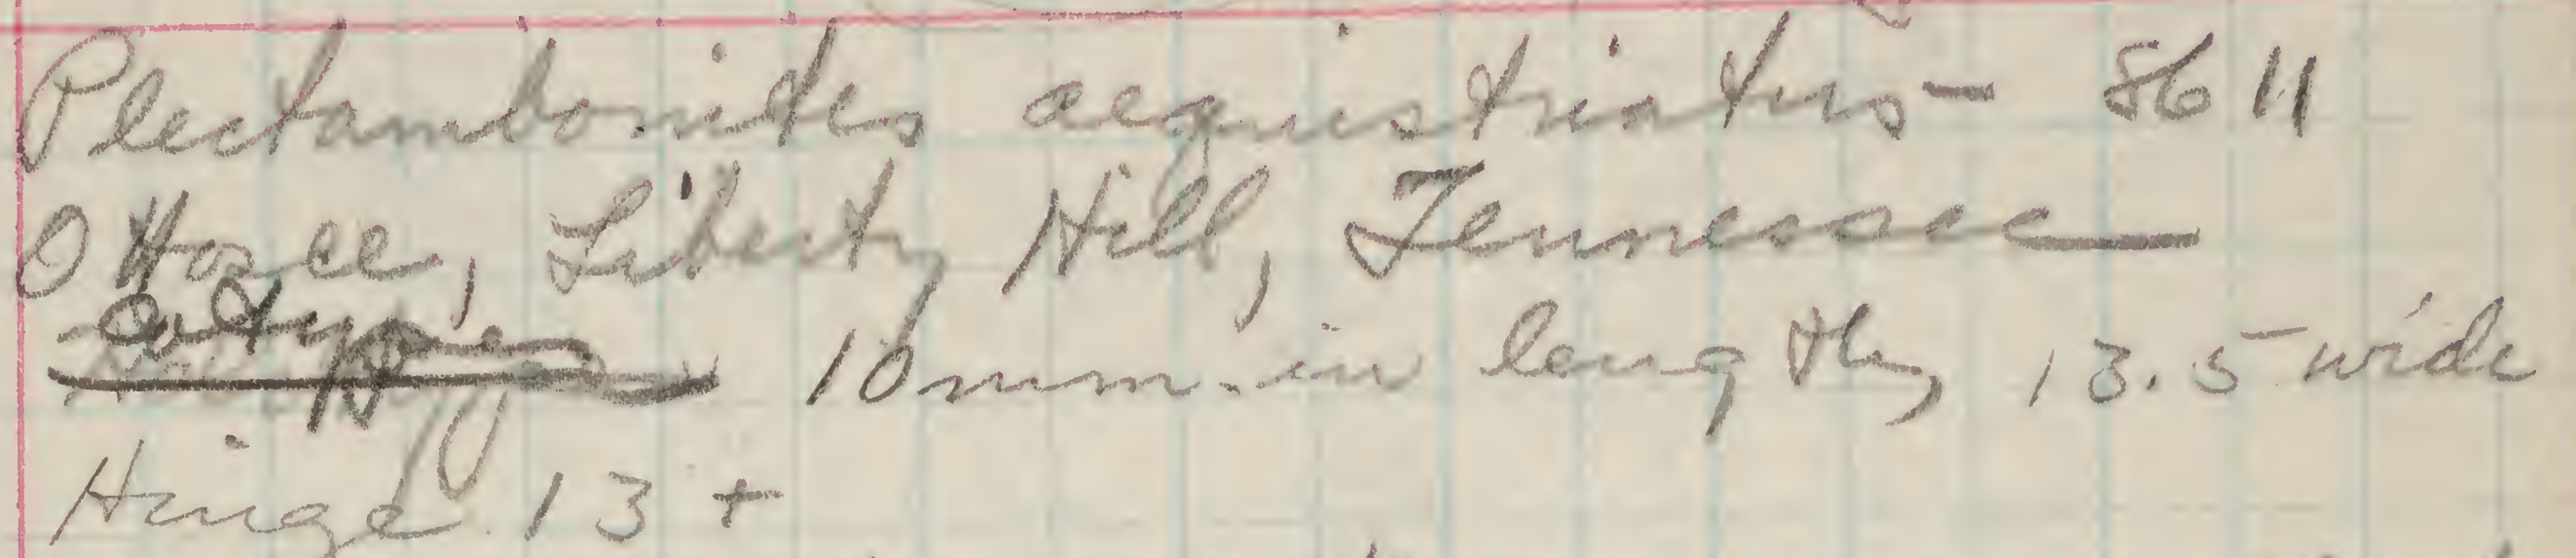 Plectambonites aequistriatus - 8611
Ottosee, Liberty Hill, Tennessee
10mm. in length, 13.5 wide
Hinge 13+